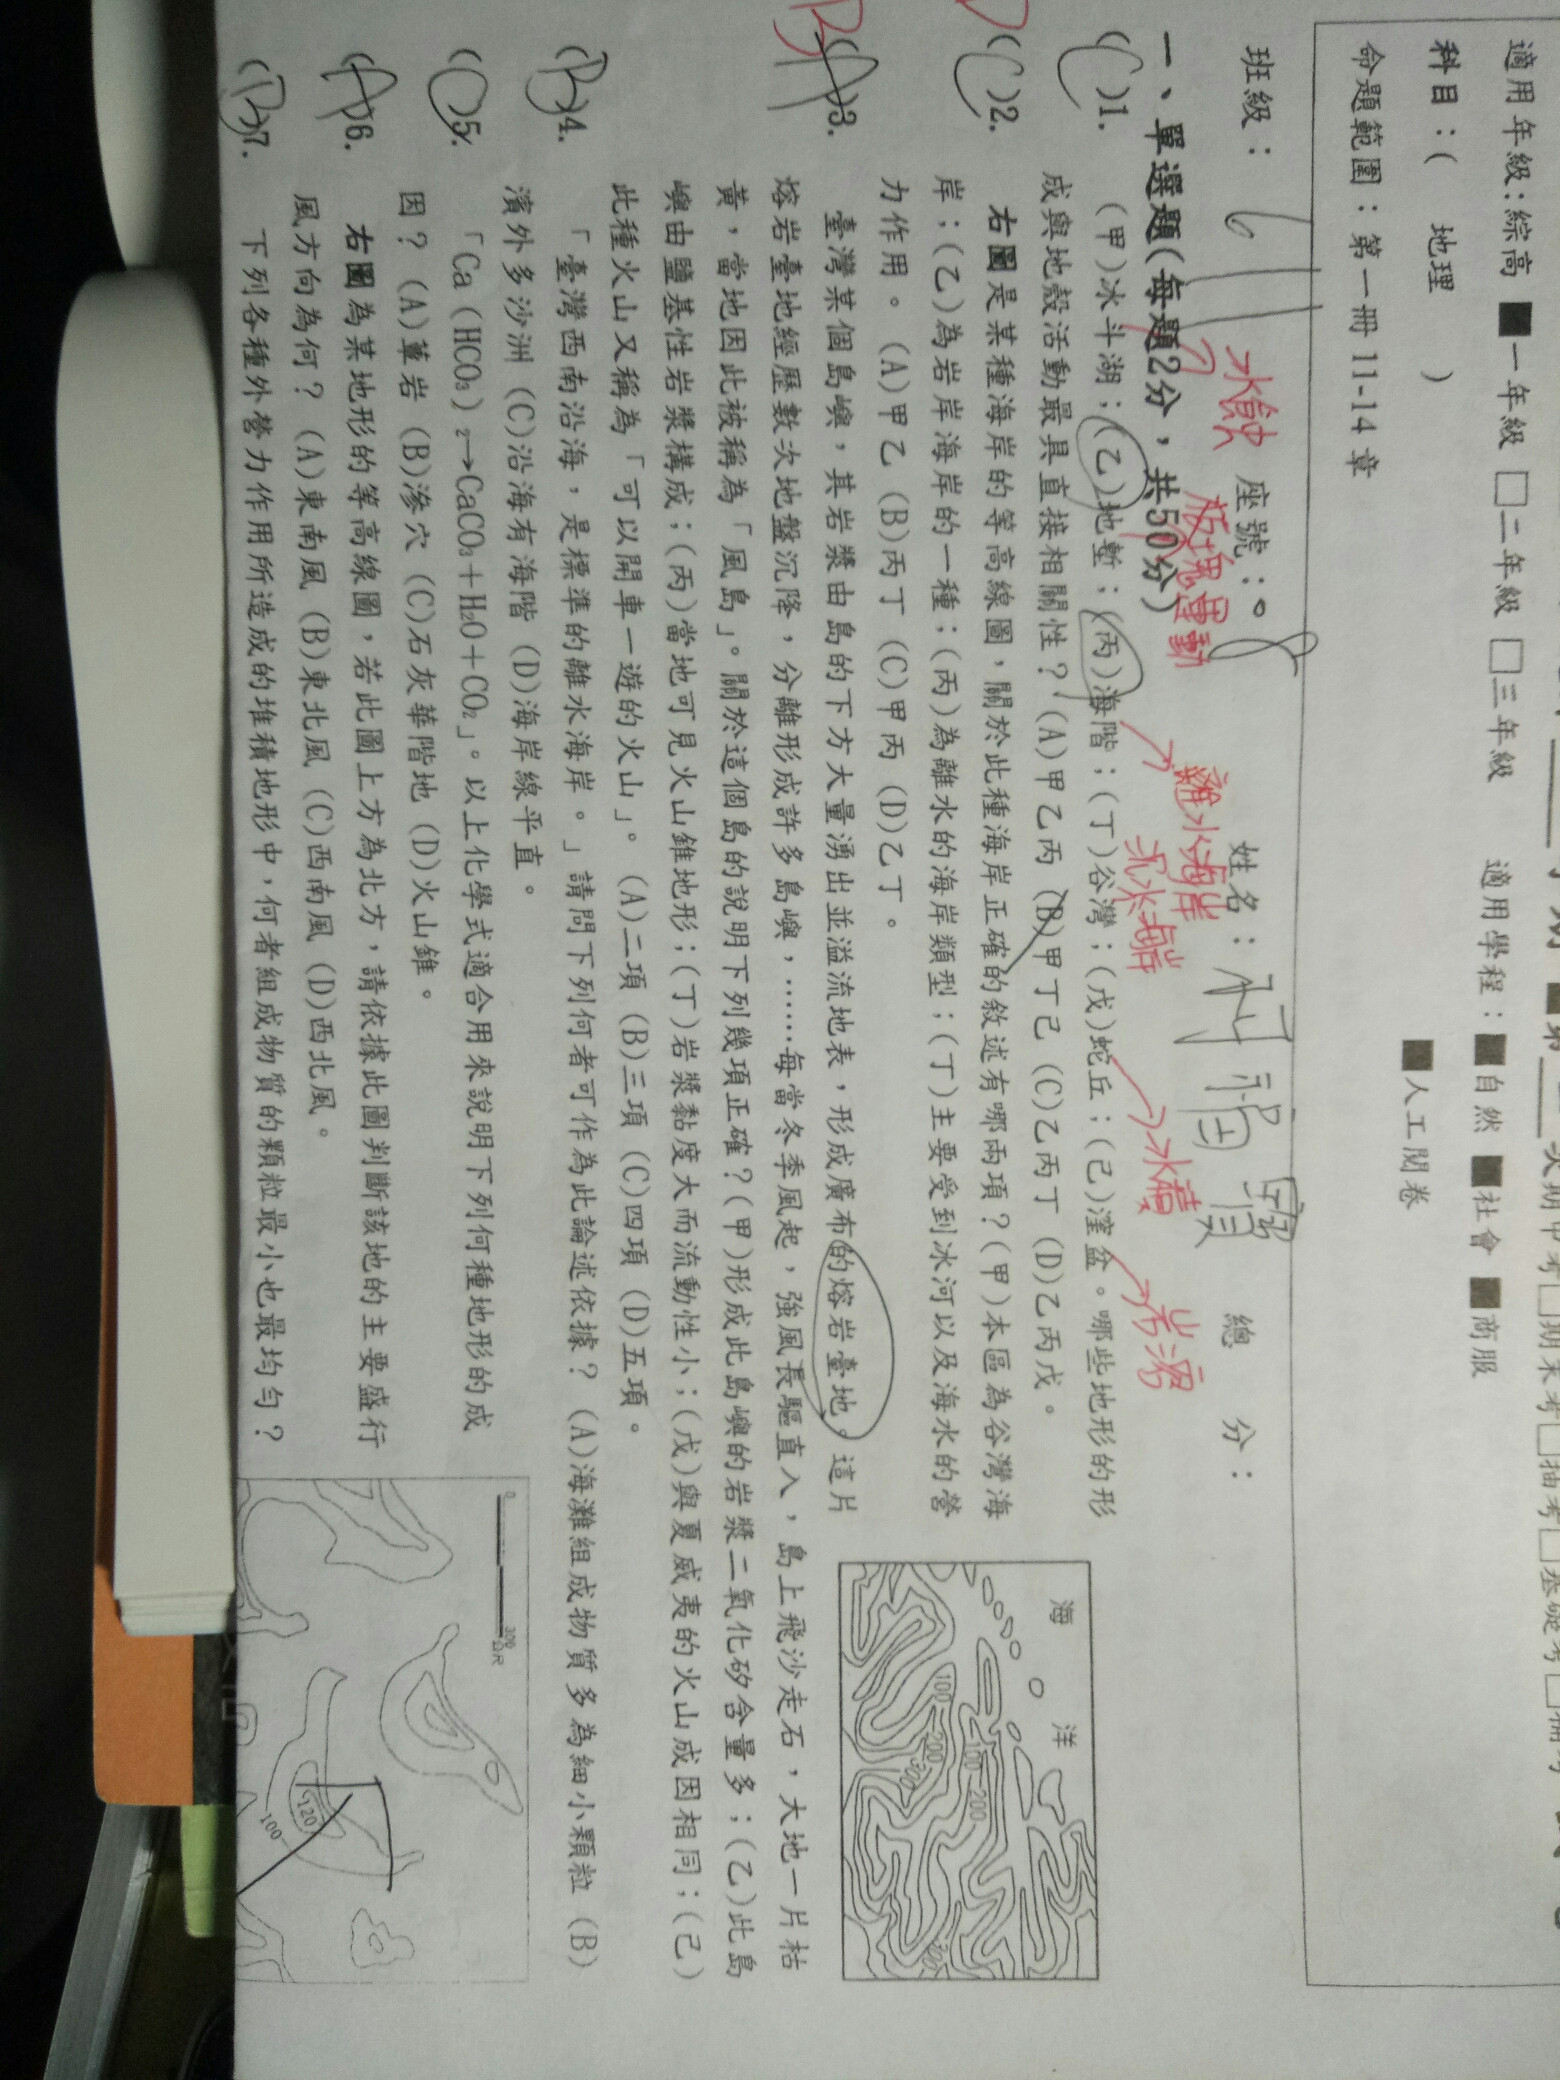 適用年級:綜高 ■一年級 □二年級 □三年級 適用學程：■自然 ■社會 ■商服
科目：( 地理 ) ■人工閱卷
命題範圍：第一冊 11-14 章
班級： 座號： 姓名： 總 分：
→水蝕
板塊運動
離水海岸
沉水海岸
→水積
→岩溶
一、單選題(每題2分，共50分)
(C)1. (甲)冰斗湖；(乙)地塹；(丙)海階；(丁)谷灣；(戊)蛇丘；(己)漥盆。哪些地形的形
成與地殼活動最具直接相關性？(A)甲乙丙 (B)甲丁己 (C)乙丙丁 (D)乙丙戊。
(C)2. 右圖是某種海岸的等高線圖，關於此種海岸正確的敘述有哪兩項？(甲)本區為谷灣海
岸；(乙)為岩岸海岸的一種；(丙)為離水的海岸類型；(丁)主要受到冰河以及海水的營
力作用。 (A)甲乙 (B)丙丁 (C)甲丙 (D)乙丁。
海 洋
100
200
300
100
200
(A)3. 臺灣某個島嶼，其岩漿由島的下方大量湧出並溢流地表，形成廣布的熔岩臺地。這片
熔岩臺地經歷數次地盤沉降，分離形成許多島嶼，……每當冬季風起，強風長驅直入，島上飛沙走石，大地一片枯
黃，當地因此被稱為「風島」。關於這個島的說明下列幾項正確？(甲)形成此島嶼的岩漿二氧化矽含量多；(乙)此島
嶼由鹽基性岩漿構成；(丙)當地可見火山錐地形；(丁)岩漿黏度大而流動性小；(戊)與夏威夷的火山成因相同；(己)
此種火山又稱為「可以開車一遊的火山」。 (A)二項 (B)三項 (C)四項 (D)五項。
(B)4. 「臺灣西南沿海，是標準的離水海岸。」請問下列何者可作為此論述依據？ (A)海灘組成物質多為細小顆粒 (B)
濱外多沙洲 (C)沿海有海階 (D)海岸線平直。
(C)5. 「Ca（HCO₃）₂→CaCO₃＋H₂O＋CO₂」。以上化學式適合用來說明下列何種地形的成
因？ (A)蕈岩 (B)滲穴 (C)石灰華階地 (D)火山錐。
(A)6. 右圖為某地形的等高線圖，若此圖上方為北方，請依據此圖判斷該地的主要盛行
風方向為何？ (A)東南風 (B)東北風 (C)西南風 (D)西北風。
0 300
公尺
120
100
(B)7. 下列各種外營力作用所造成的堆積地形中，何者組成物質的顆粒最小也最均勻？